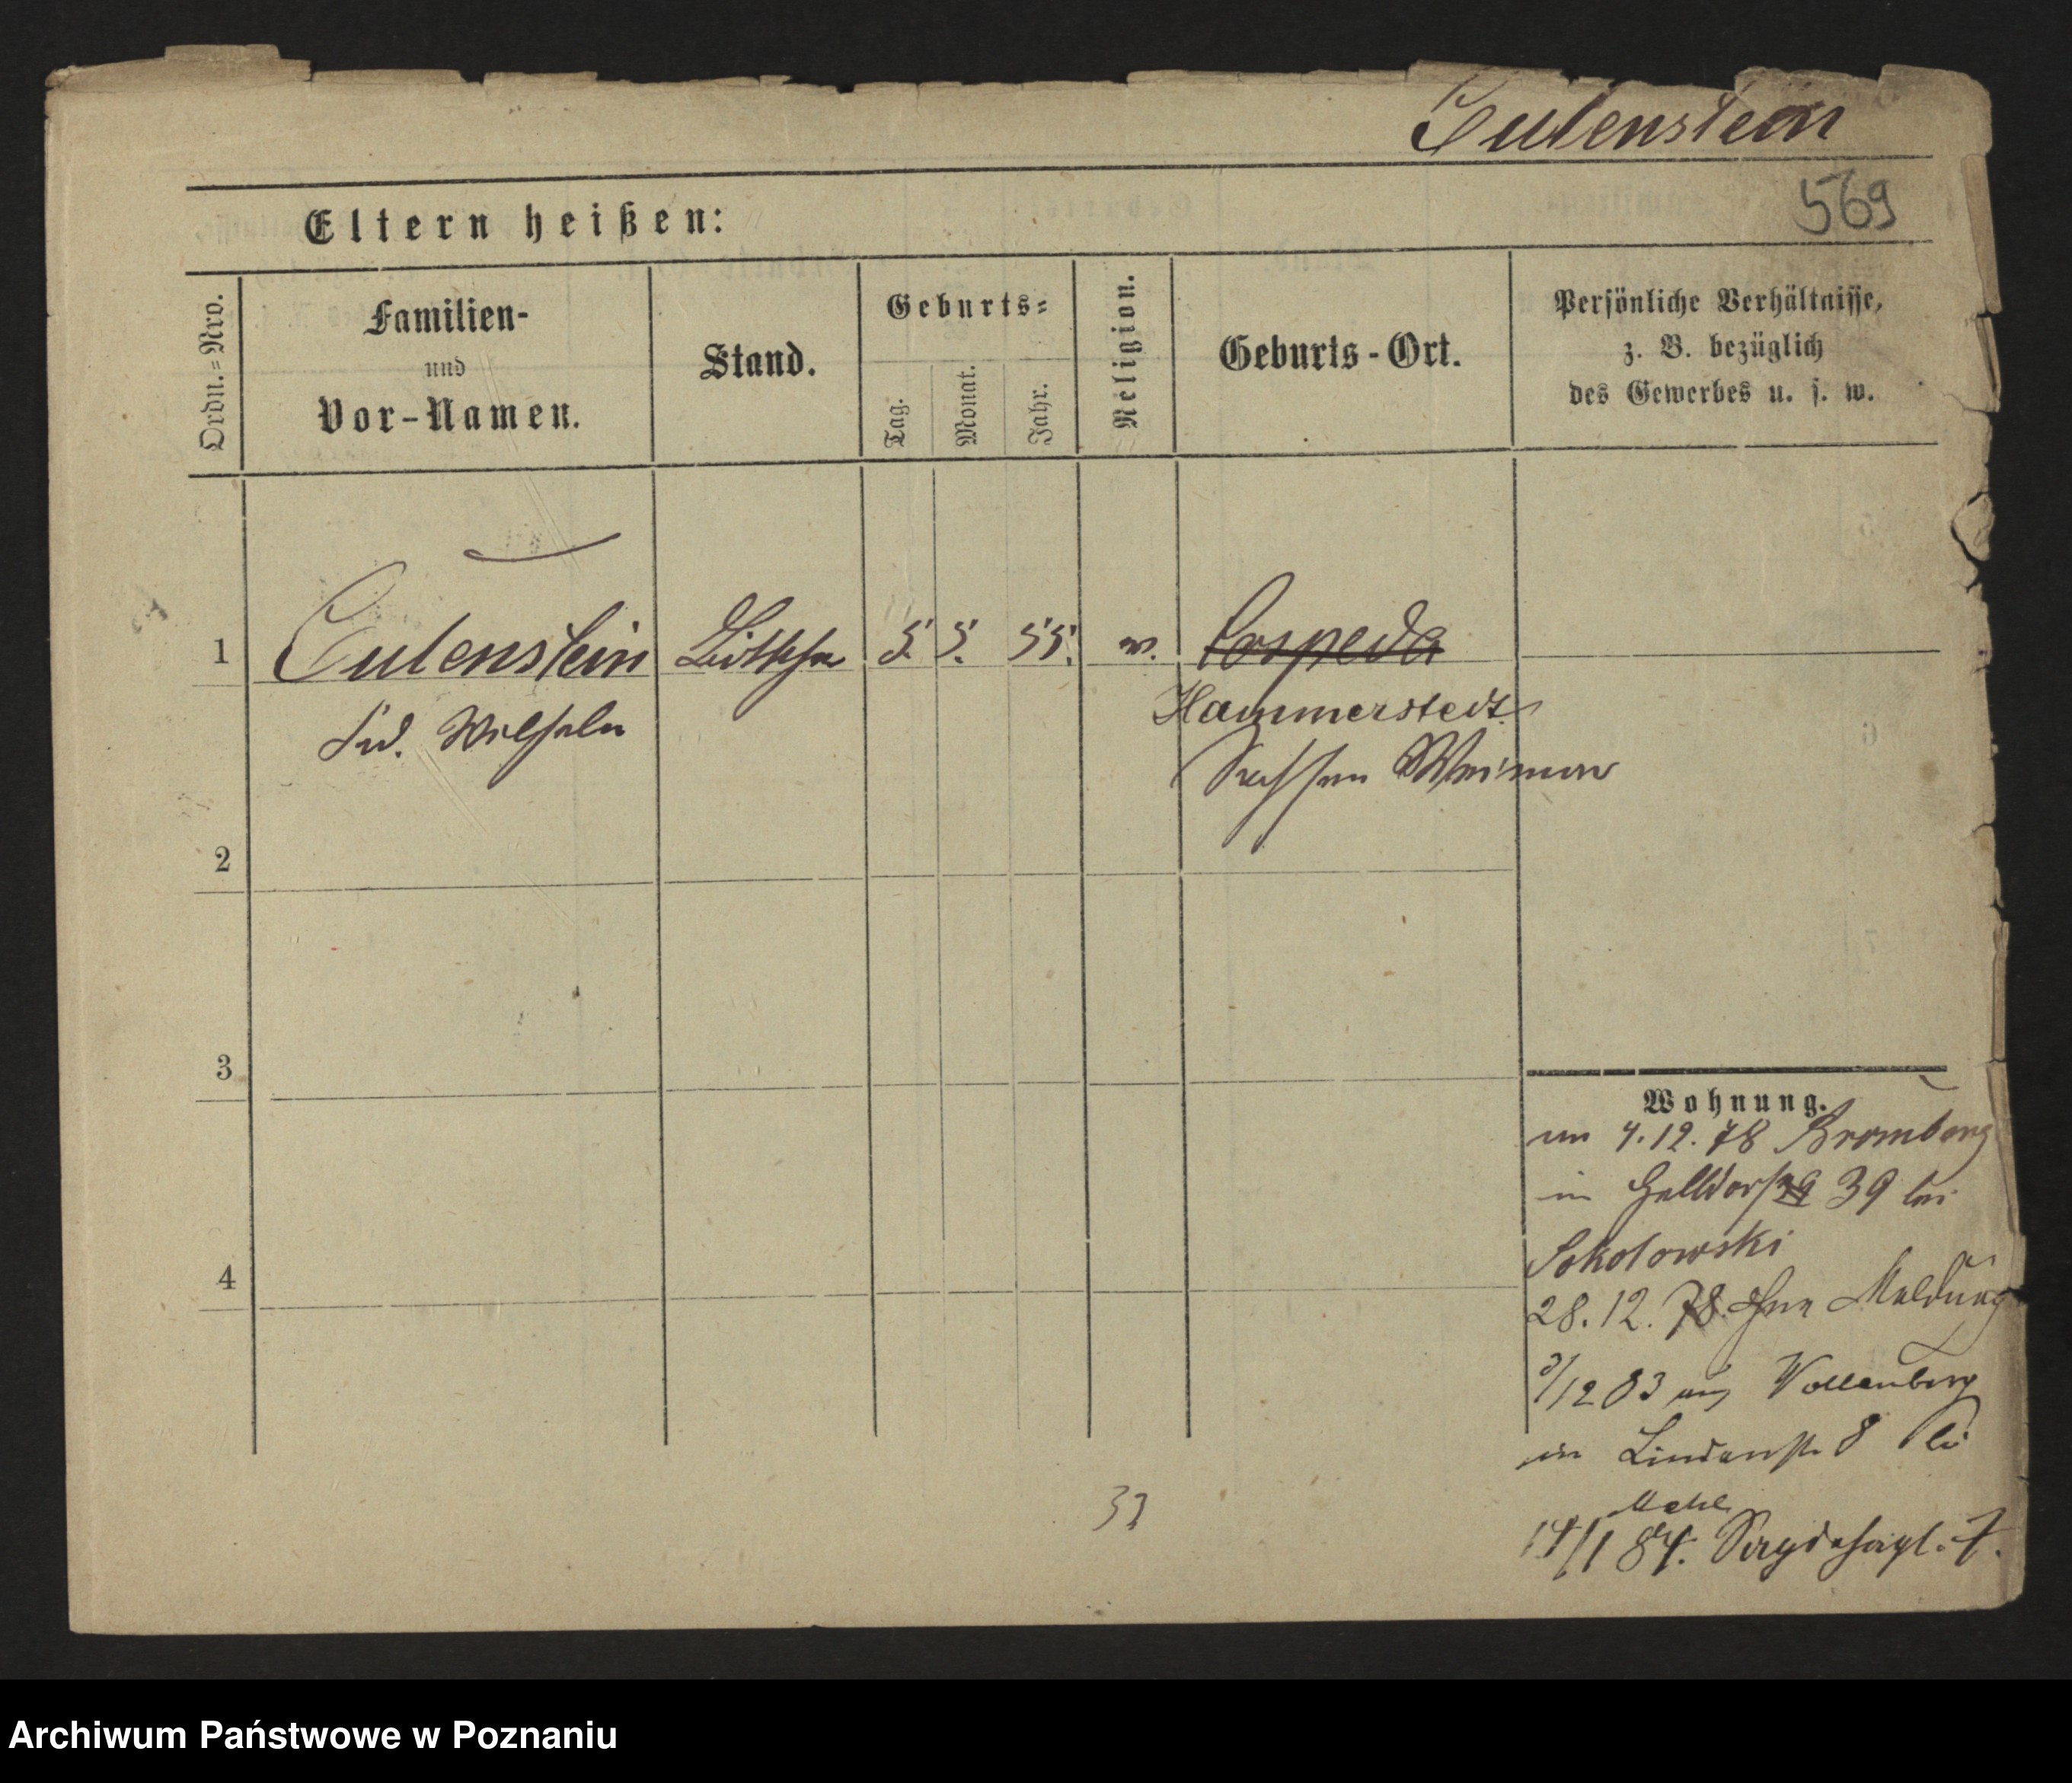 Eulenstein
569
Eltern heißen:
Ordn.=Nro.
Familien-
und
Vor-Namen.
Stand.
Geburts=
Tag.
Monat.
Jahr.
Religion.
Geburts-Ort.
Persönliche Verhältnisse,
z. B. bezüglich
des Gewerbes u. s. w.
1 Eulenstein 5. 5. 55. Cospeda
Frd. Wilhelm Hammerstedt
Sachsen Weimar
2
3
4
Wohnung.
4.12.78 Bromberg
in Halldorfstr 39 bei
Sokolowski
28.12.78. Ohne Meldung
3/12 83 aus Wollenberg
in Lindenstr 8 bei
14/1 84.
33
Archiwum Państwowe w Poznaniu